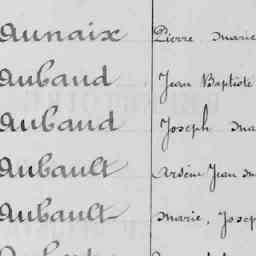 Aunaix Pierre marie
Aubaud Jean Baptiste
Aubaud Joseph ma
Aubault Arsène Jean m
Aubault marie, Josep